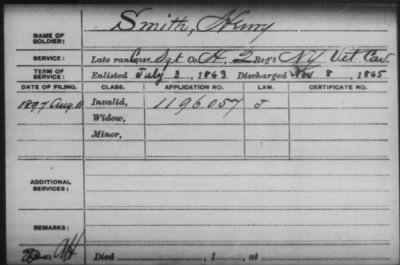 NAME OF SOLDIER: Smith, Henry
SERVICE: Late rank Com Sgt Co K, 2 Reg't NY Vet. Cav.
TERM OF SERVICE: Enlisted July 3, 1863 Discharged Nov 8, 1865
DATE OF FILING. CLASS. APPLICATION NO. LAW. CERTIFICATE NO.
1897 Aug. 11 Invalid, 1196.057 J
Widow,
Minor,
ADDITIONAL SERVICES:
REMARKS:
Died , 1 , at